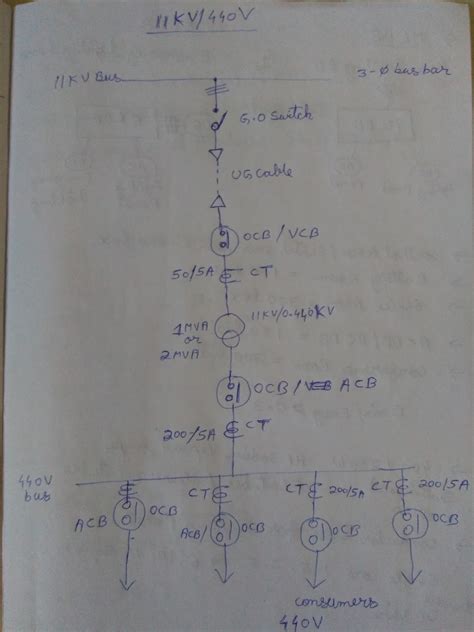 11KV/440V
11KV Bus
3-Ø busbar
G.O Switch
UG Cable
OCB/VCB
50/5A CT
11KV/0.440KV
1MVA
or
2MVA
OCB/ ACB
200/5A CT
440V
bus
CT
CT 200/5A
CT 200/5A
ACB OCB
ACB/ OCB
OCB
OCB
consumers
440V